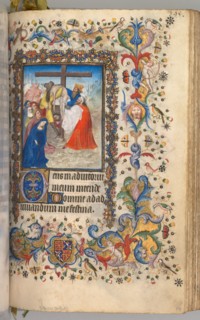 Deus in adiutori
um meum intende
Domine ad ad
iuuandum me festina.